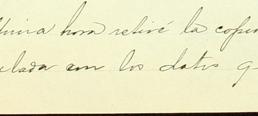 última hora retiré la copia
elada con los datos q